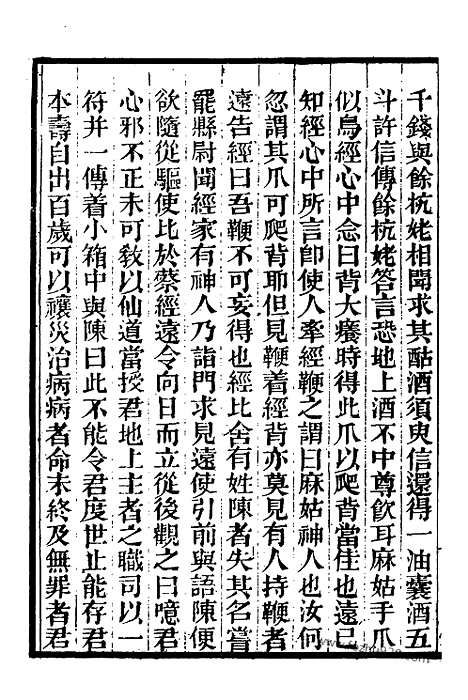 千錢與餘杭姥相聞求其酤酒須臾信還得一油囊酒五
斗許信傳餘杭姥答言恐地上酒不中尊飲耳麻姑手爪
似鳥經心中念曰背大癢時得此爪以爬背當佳也遠已
知經心中所言卽使人牽經鞭之謂曰麻姑神人也汝何
忽謂其爪可爬背耶但見鞭着經背亦莫見有人持鞭者
遠告經曰吾鞭不可妄得也經比舍有姓陳者失其名嘗
罷縣尉聞經家有神人乃詣門求見遠使引前與語陳便
欲隨從驅使比於蔡經遠令向日而立從後觀之曰噫君
心邪不正未可敎以仙道當授君地上主者之職司以一
符并一傳着小箱中與陳曰此不能令君度世止能存君
本壽自出百歲可以禳災治病病者命未終及無罪者君